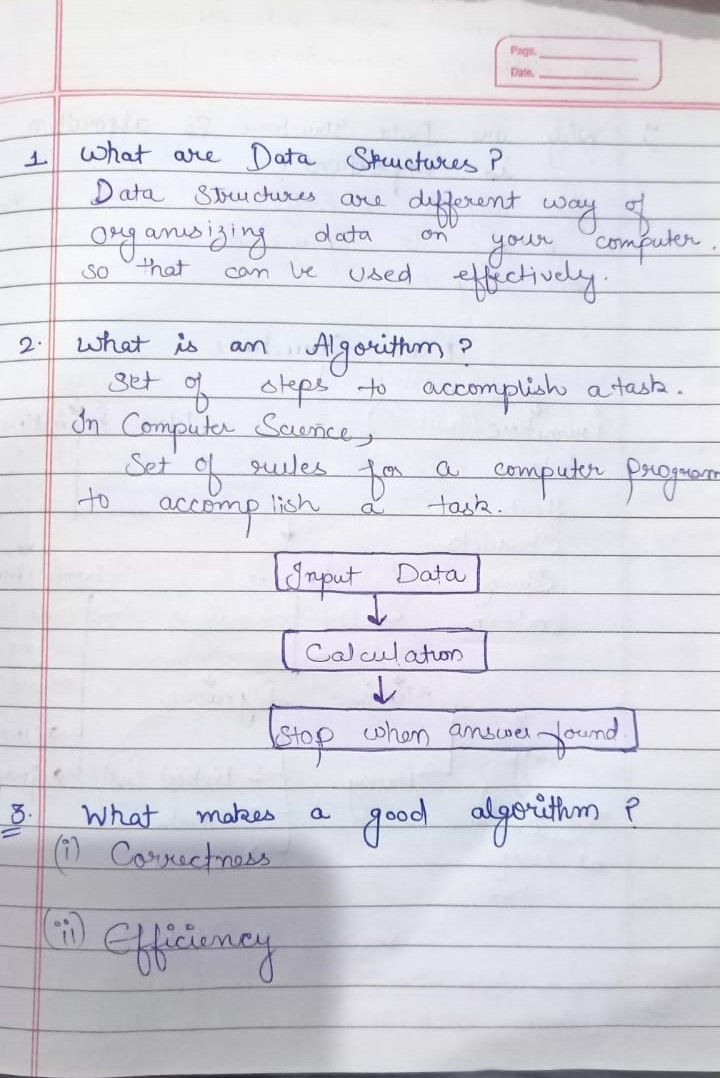 Page.
Date.
1 What are Data Structures?
Data Structures are different way of
organisizing data on your computer.
so that can be used effectively.
2. What is an Algorithm?
Set of steps to accomplish a task.
In Computer Science,
Set of rules for a computer program
to accomplish a task.
Input Data
↓
Calculation
↓
Stop when answer found.
3. What makes a good algorithm?
(i) Correctness
(ii) Efficiency